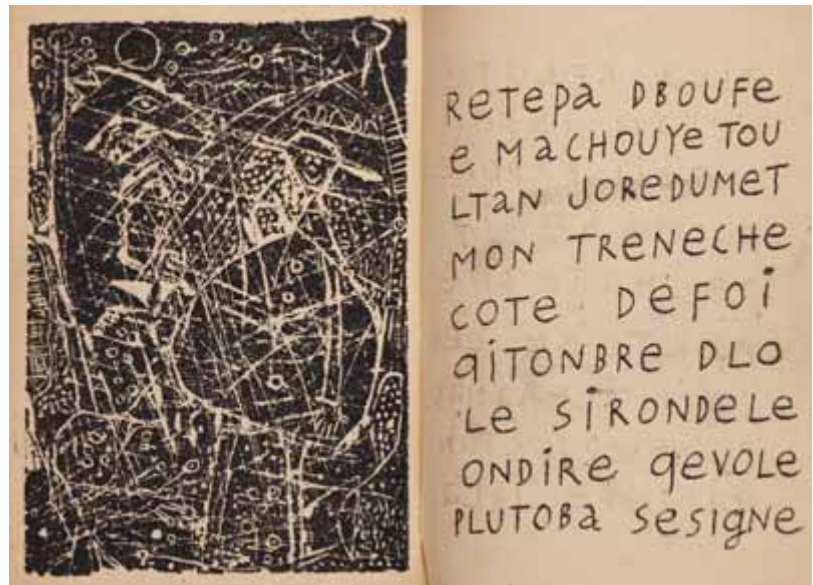 ReTePa DBOUFe
e MaCHOUYe TOU
LTaN JOReDUMeT
MON TReNeCHe
COTe DeFOi
qiTONBRe DLO
Le SiRONDeLe
ONDiRe qeVOLe
PLUTOBa SeSiGNe